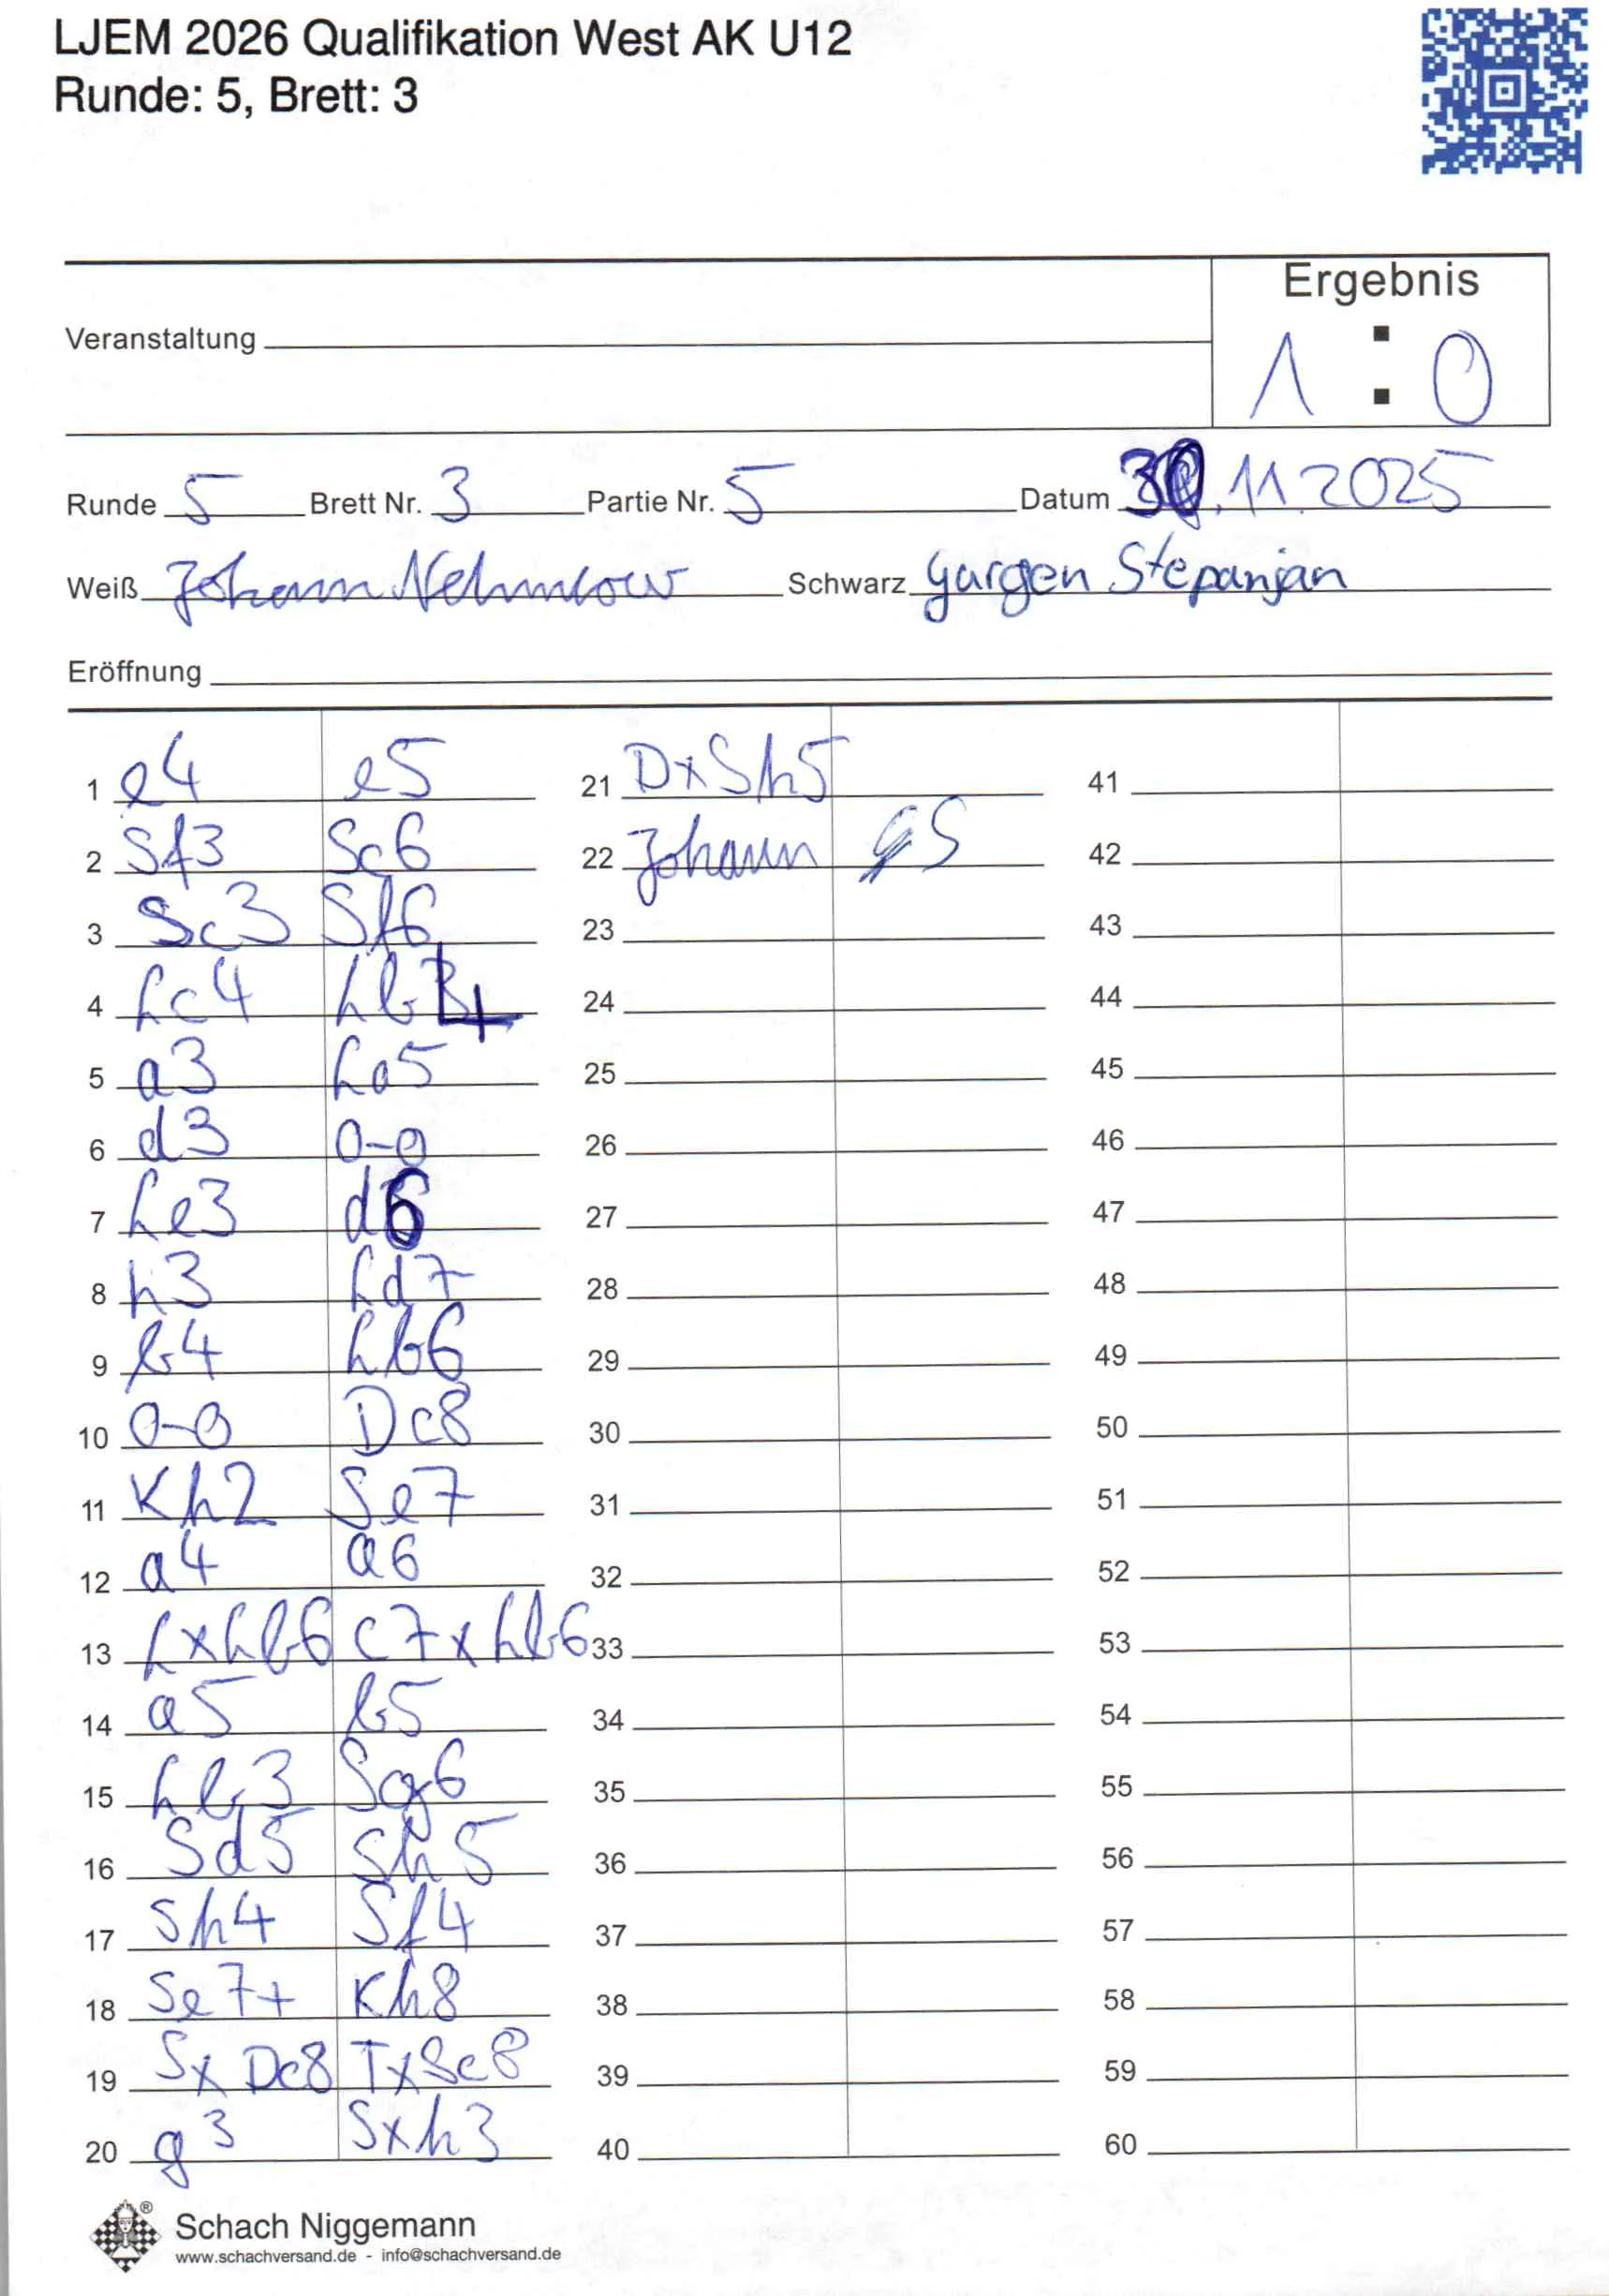 LJEM 2026 Qualifikation West AK U12
Runde: 5, Brett: 3
Ergebnis
Veranstaltung
1 : 0
Runde 5 Brett Nr. 3 Partie Nr. 5 Datum 30.11.2025
Weiß Johann Nehmlow Schwarz Gurgen Stepanjan
Eröffnung
1 e4 e5 21 DxSh5 41
2 Sf3 Sc6 22 Johann GS 42
3 Sc3 Sf6 23 43
4 Lc4 Lb4 24 44
5 a3 La5 25 45
6 d3 0-0 26 46
7 Le3 d6 27 47
8 h3 Ld7 28 48
9 b4 Lb6 29 49
10 0-0 Dc8 30 50
11 Kh2 Se7 31 51
12 a4 a6 32 52
13 LxLb6 c7xLb6 33 53
14 a5 b5 34 54
15 Lb3 Sg6 35 55
16 Sd5 Sh5 36 56
17 Sh4 Sf4 37 57
18 Se7+ Kh8 38 58
19 SxDc8 TxSc8 39 59
20 g3 Sxh3 40 60
® Schach Niggemann
www.schachversand.de - info@schachversand.de